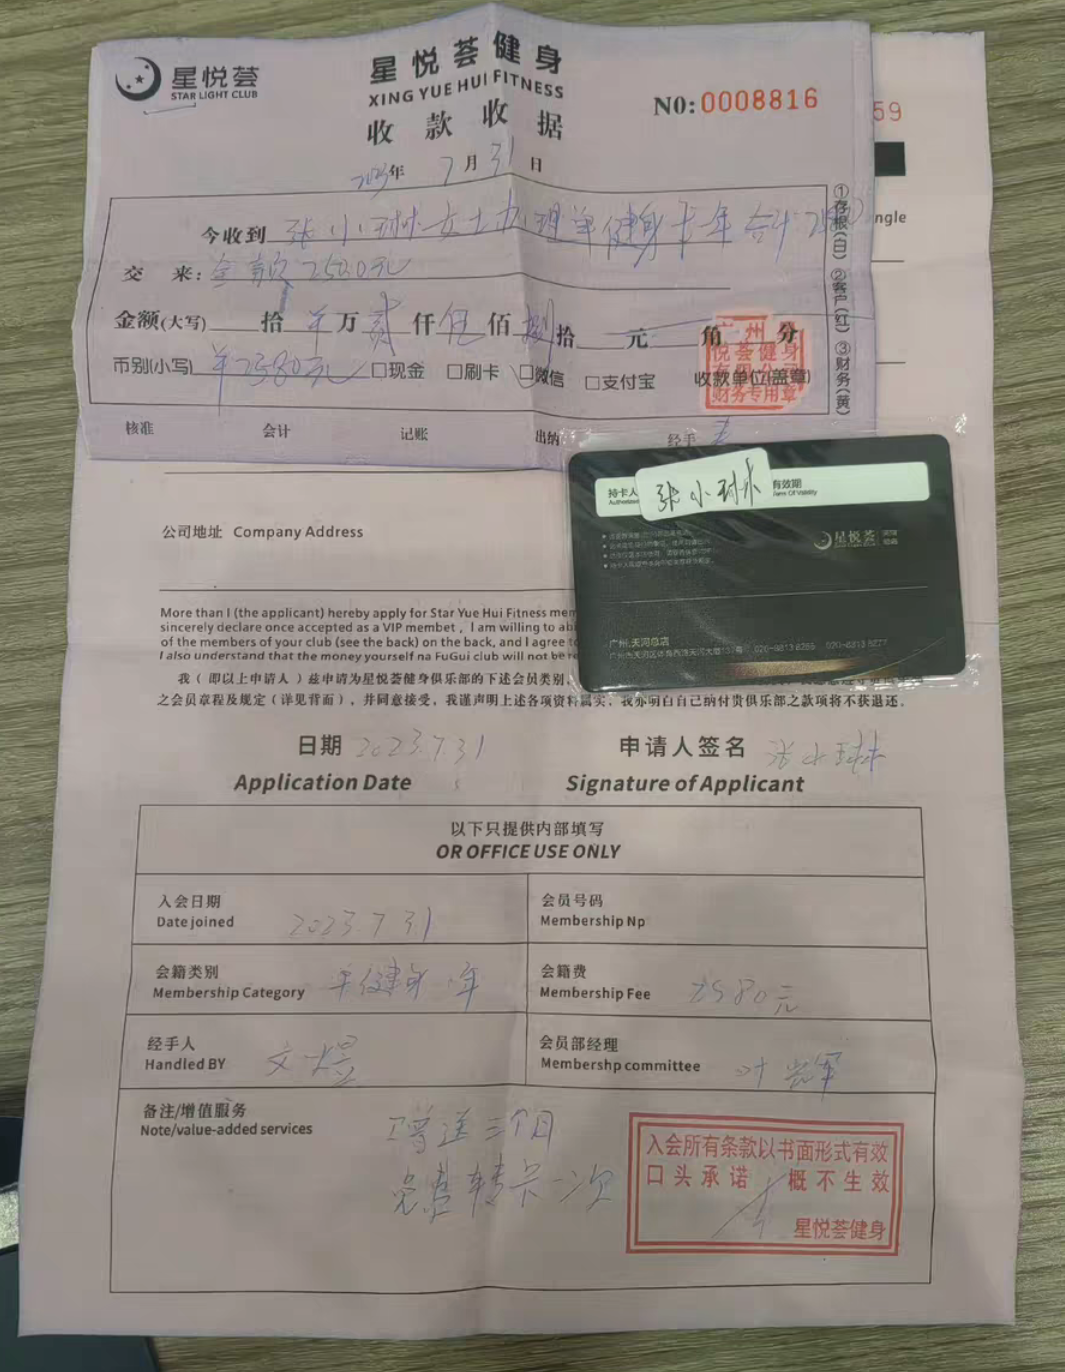 星悦荟
STAR LIGHT CLUB
星悦荟健身
XING YUE HUI FITNESS
收款收据
N0:0008816
59
2023年7月31日
今收到 张小琳女士办理单健身卡年合计
交 来:全款2580元
金额(大写) 拾 万贰仟伍佰捌拾 元 角 分
币别(小写) 2580元 □现金 □刷卡 □微信 □支付宝 收款单位(盖章)
广州
悦荟健身
财务专用章
①存根(白) ②客户(红) ③财务(黄)
ngle
核准 会计 记账 出纳 经手
持卡人 张小琳 有效期
星悦荟
广州.天河总店
公司地址 Company Address
More than I (the applicant) hereby apply for Star Yue Hui Fitness mem
sincerely declare once accepted as a VIP membet , I am willing to ab
of the members of your club (see the back) on the back, and I agree to
I also understand that the money yourself na FuGui club will not be re
我（即以上申请人）兹申请为星悦荟健身俱乐部的下述会员类别,
之会员章程及规定（详见背面），并同意接受，我谨声明上述各项资料属实，我亦明白自己纳付贵俱乐部之款项将不获退还.
日期 2023.7.31 申请人签名 张小琳
Application Date Signature of Applicant
以下只提供内部填写
OR OFFICE USE ONLY
入会日期 会员号码
Date joined 2023.7.31 Membership Np
会籍类别 单健身一年 会籍费 2580元
Membership Category Membership Fee
经手人 会员部经理
Handled BY 文煜 Membershp committee 叶
备注/增值服务
Note/value-added services 赠送三个月
免费转卡一次
入会所有条款以书面形式有效
口头承诺 概不生效
星悦荟健身